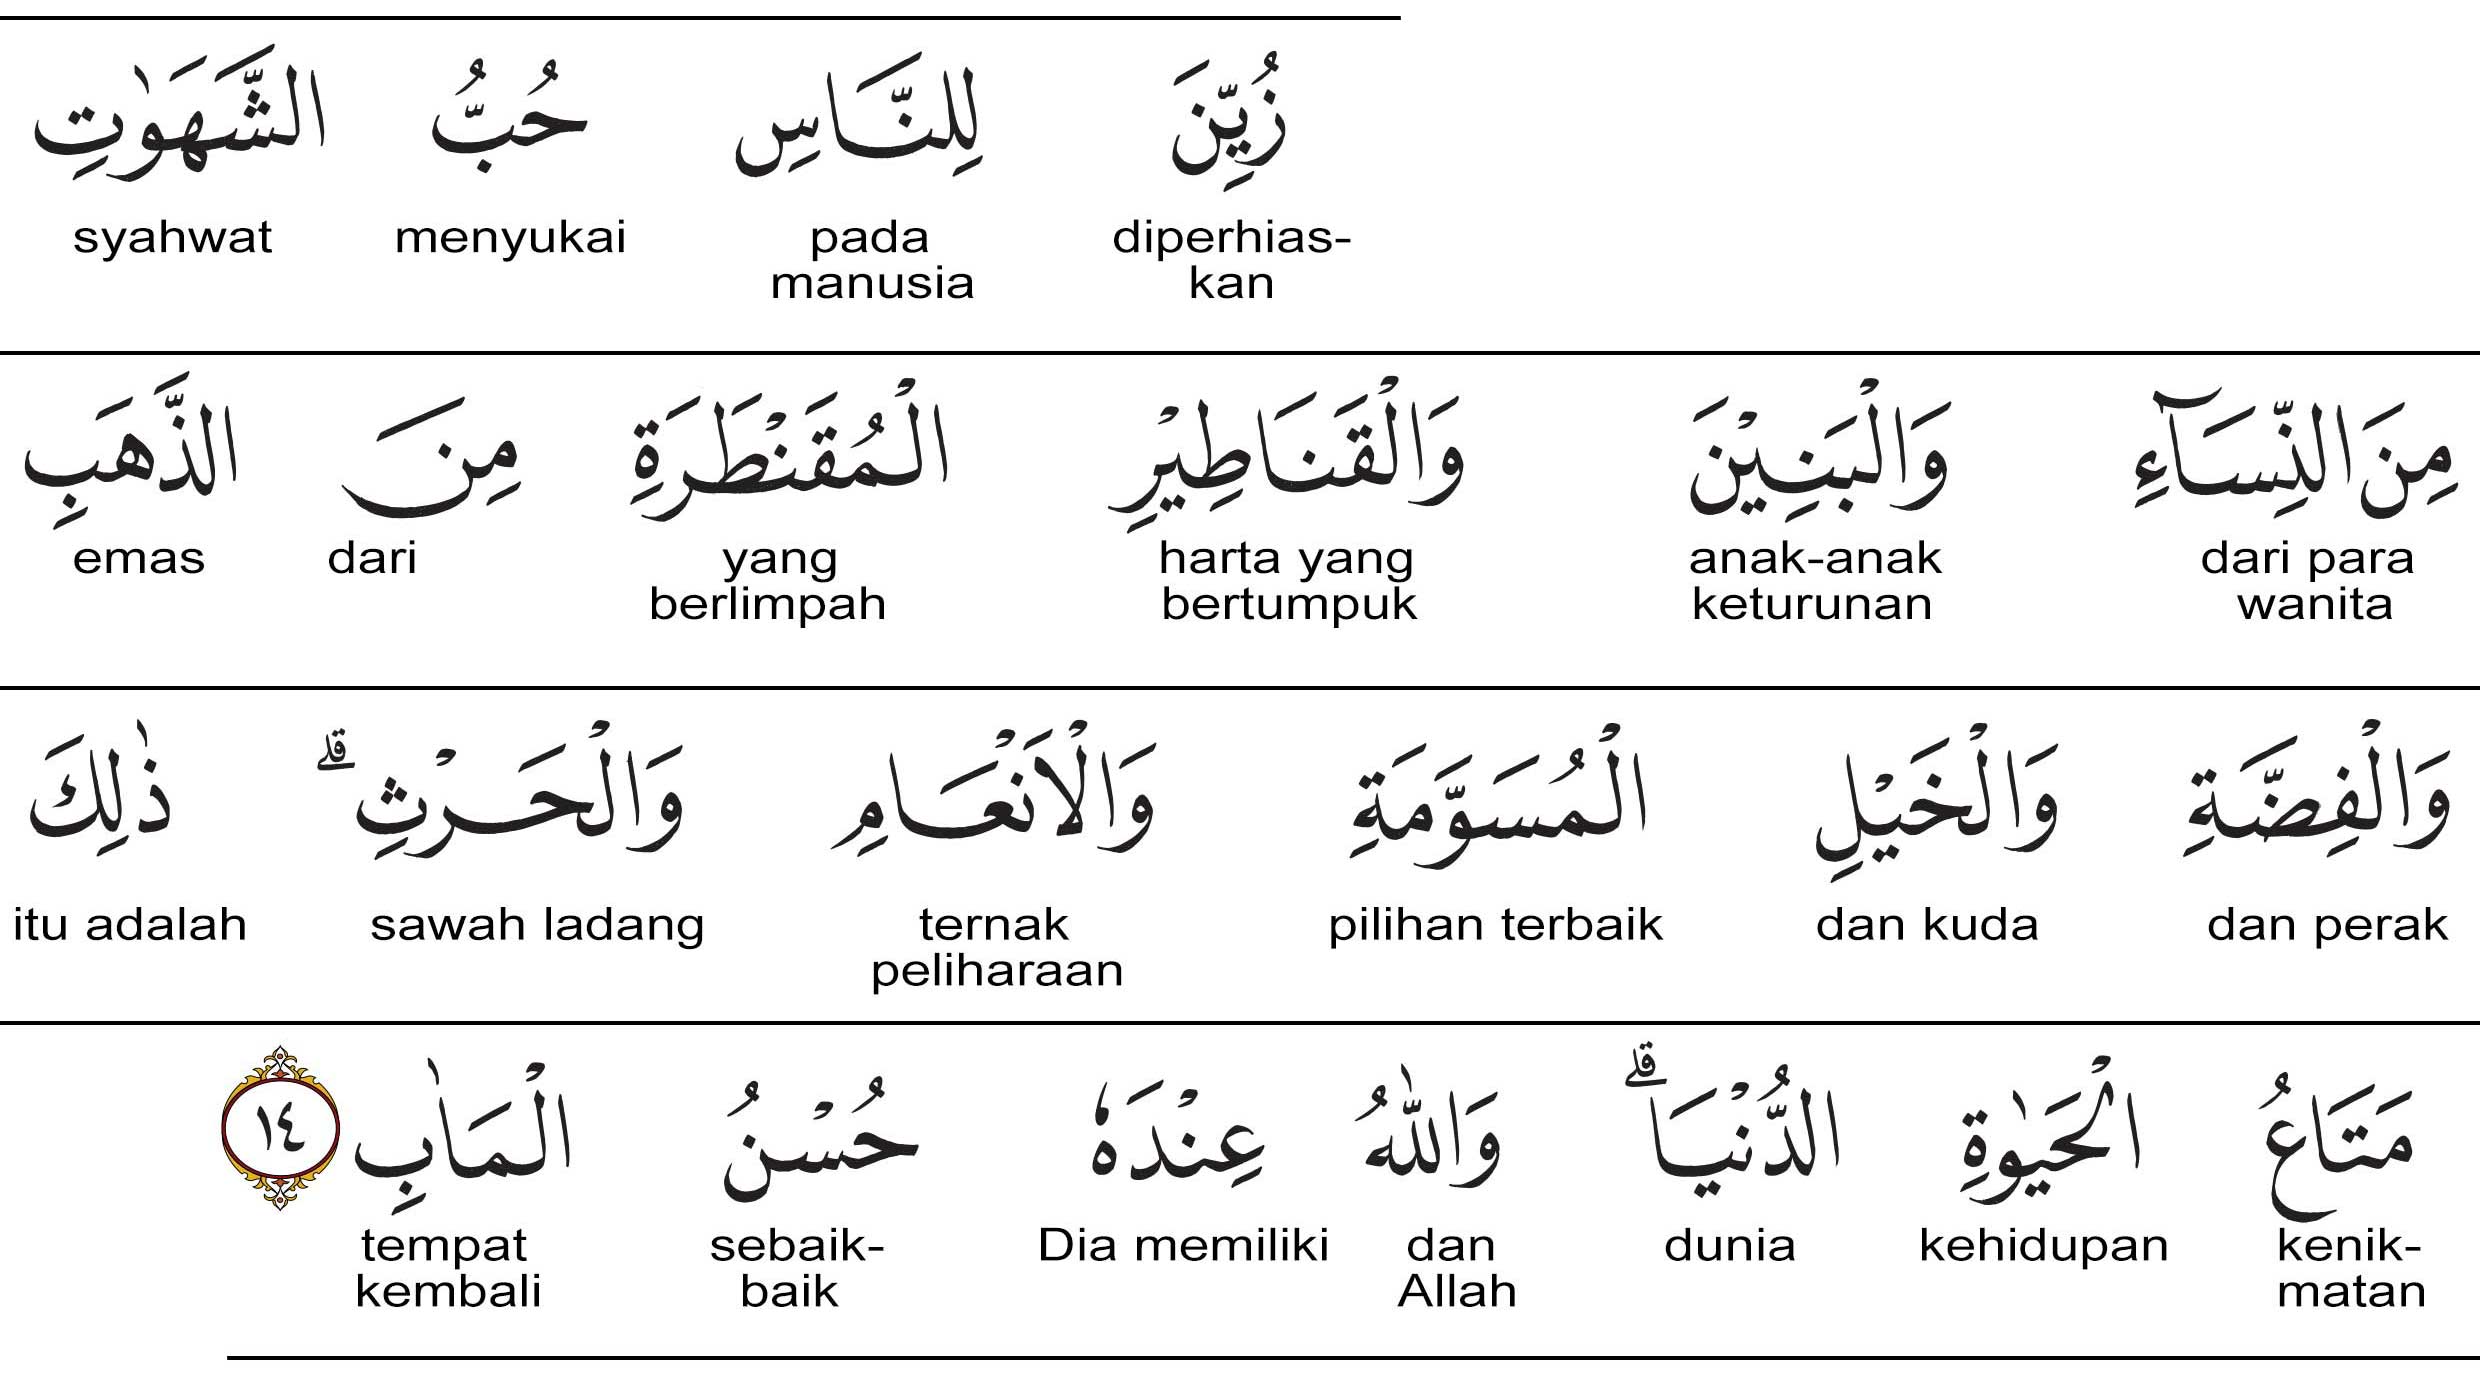 زُيِّنَ لِلنَّاسِ حُبُّ الشَّهَوٰتِ
diperhias- pada menyukai syahwat
kan manusia
مِنَ النِّسَاۤءِ وَالْبَنِيْنَ وَالْقَنَاطِيْرِ الْمُقَنْطَرَةِ مِنَ الذَّهَبِ
dari para anak-anak harta yang yang dari emas
wanita keturunan bertumpuk berlimpah
وَالْفِضَّةِ وَالْخَيْلِ الْمُسَوَّمَةِ وَالْاَنْعَامِ وَالْحَرْثِۗ ذٰلِكَ
dan perak dan kuda pilihan terbaik ternak sawah ladang itu adalah
peliharaan
مَتَاعُ الْحَيٰوةِ الدُّنْيَاۗ وَاللّٰهُ عِنْدَهٗ حُسْنُ الْمَاٰبِ ١٤
kenik- kehidupan dunia dan Dia memiliki sebaik- tempat
matan Allah baik kembali